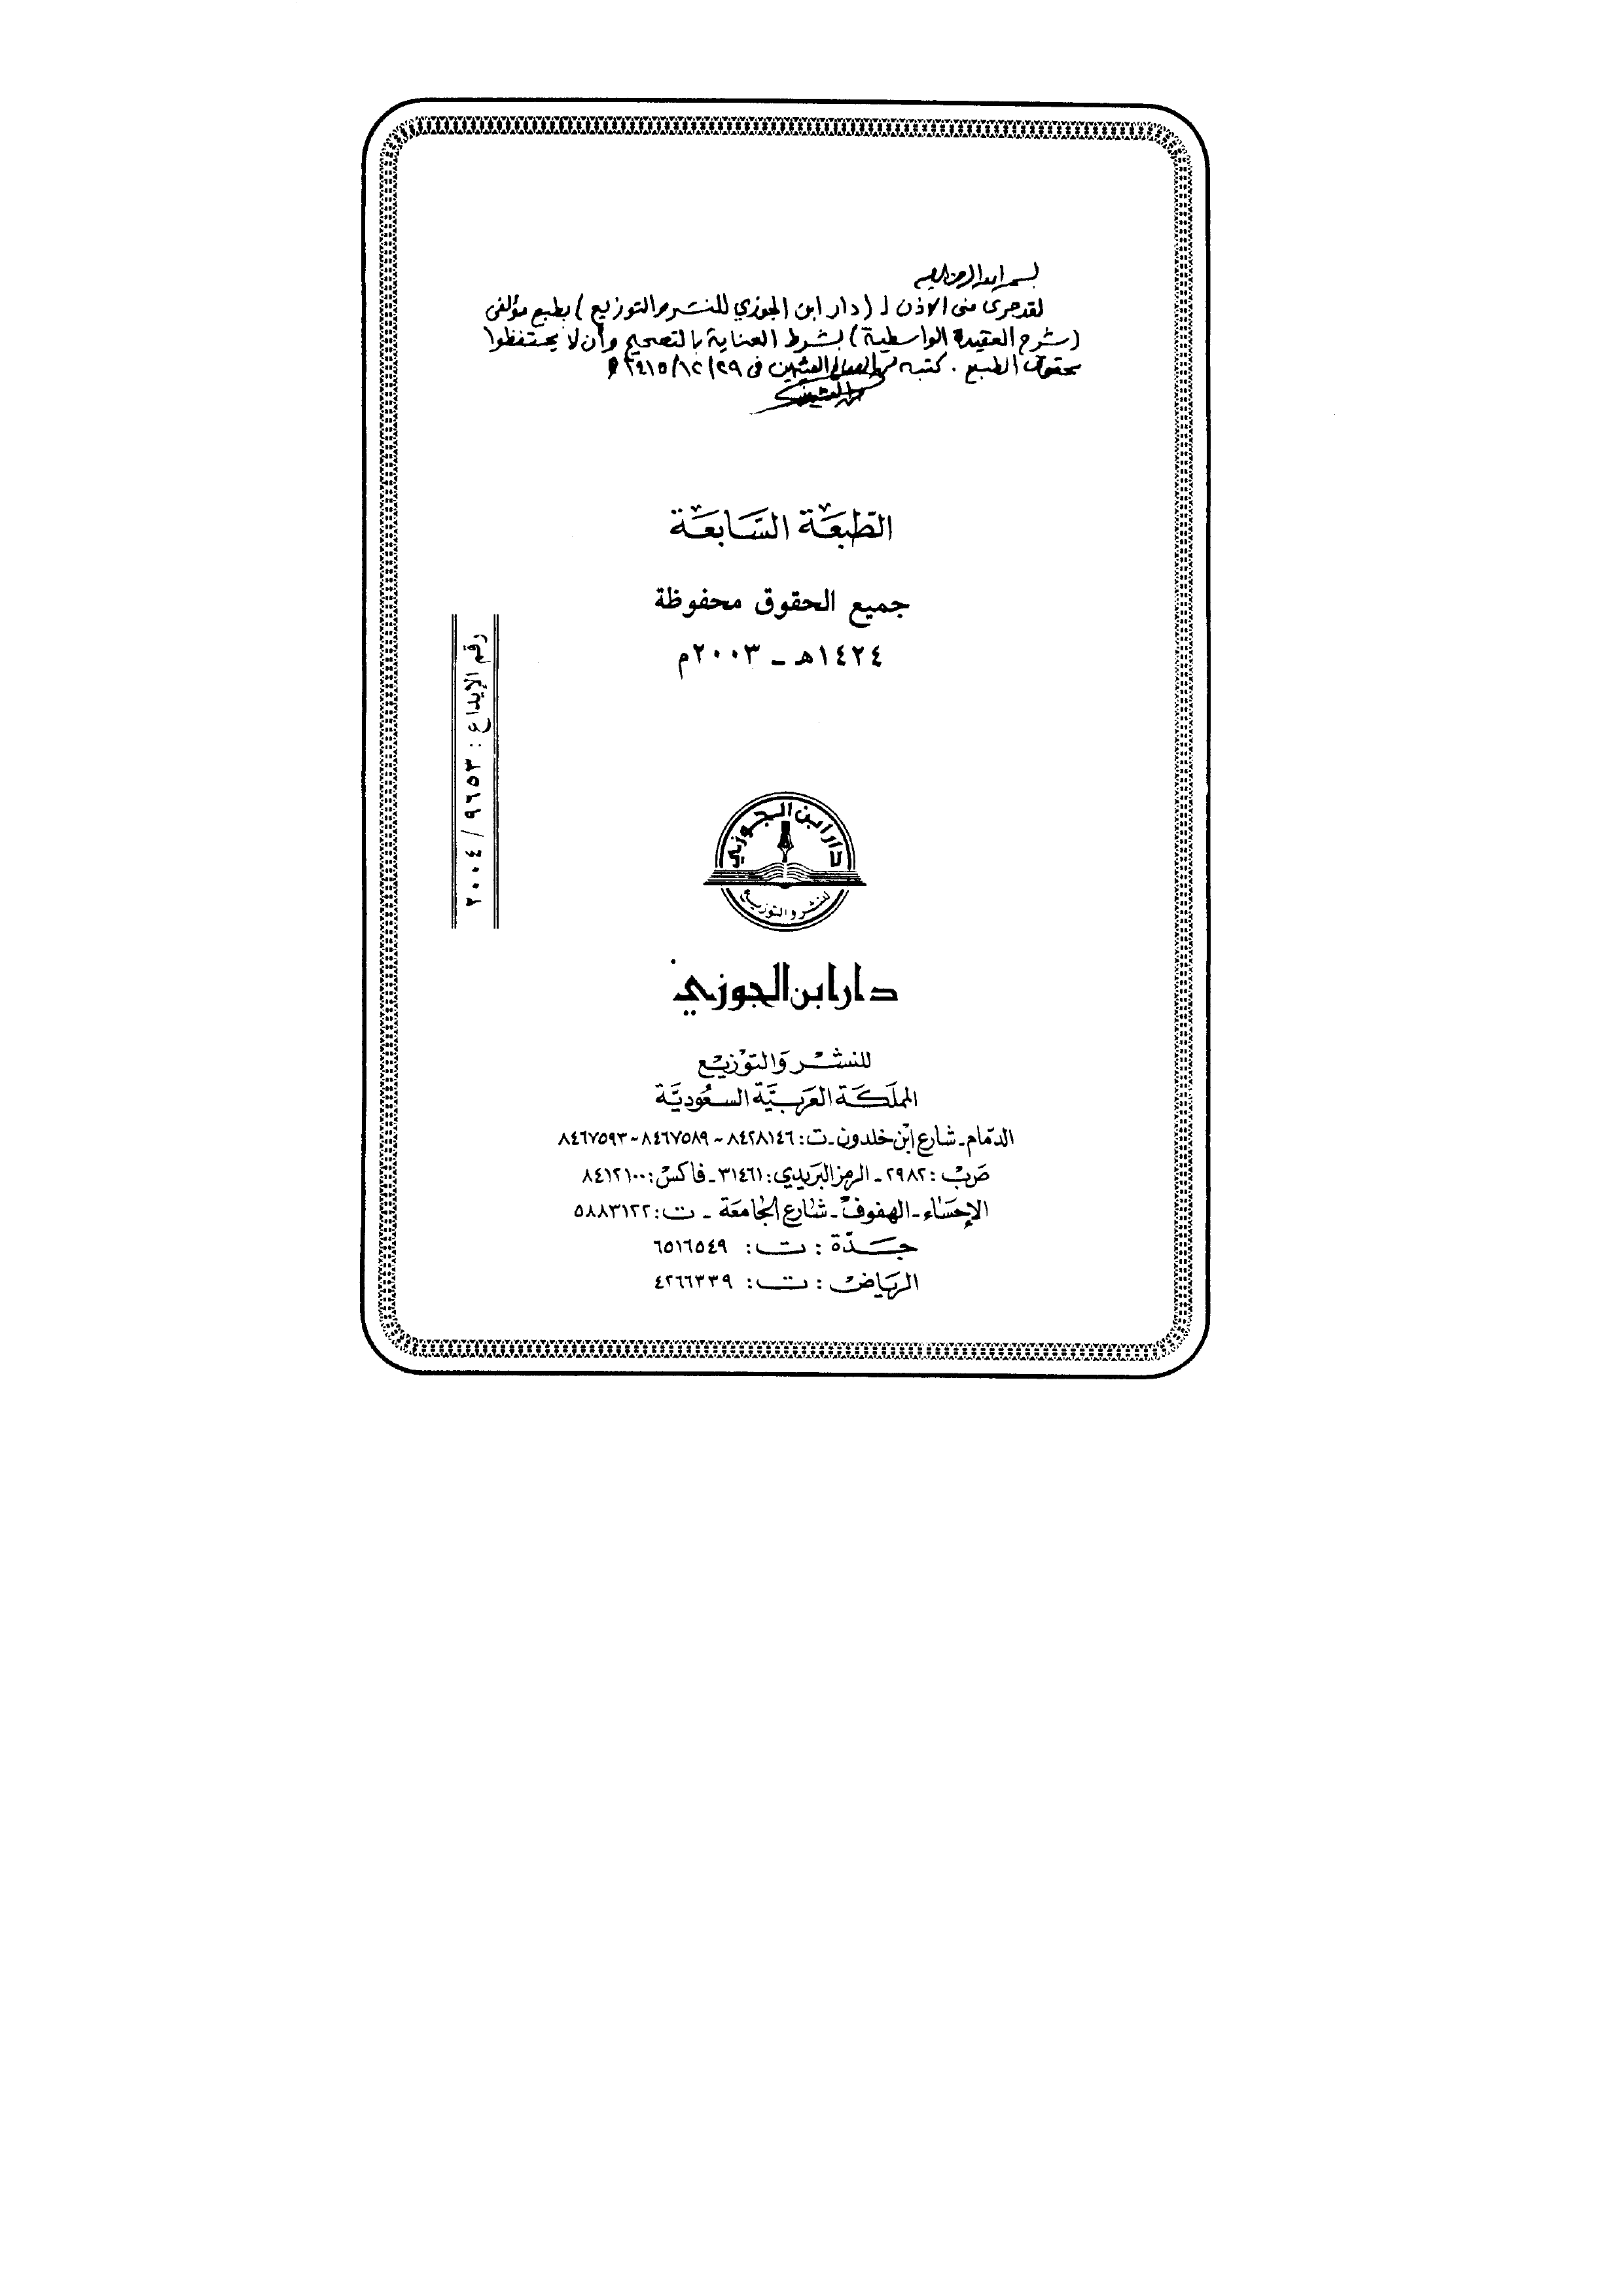 بسم الله الرحمن الرحيم
لقد جرى منى الاذن لـ (دار ابن الجوزي للنشر والتوزيع) بطبع مؤلفي
(شرح العقيدة الواسطية) بشرط العناية بالتصحيح وأن لا يحتفظوا
بحقوق الطبع . كتبه محمد الصالح العثيمين في ٢٩/١٢/١٤١٥هـ
محمد العثيمين
الطَّبعَة السَّابعَة
جميع الحقوق محفوظة
١٤٢٤هـ - ٢٠٠٣م
رقم الإيداع : ٩٦٥٣ / ٢٠٠٤
دار ابن الجوزي
للنشر والتوزيع
دار ابن الجوزي
للنشر والتوزيع
المملكة العربية السعودية
الدمام - شارع ابن خلدون - ت : ٨٤٢٨١٤٦ - ٨٤٦٧٥٨٩ - ٨٤٦٧٥٩٣
ص ب : ٢٩٨٢ - الرمز البريدي : ٣١٤٦١ - فاكس : ٨٤١٢١٠٠
الإحساء - الهفوف - شارع الجامعة - ت : ٥٨٨٣١٢٢
جدة : ت : ٦٥١٦٥٤٩
الرياض : ت : ٤٢٦٦٣٣٩